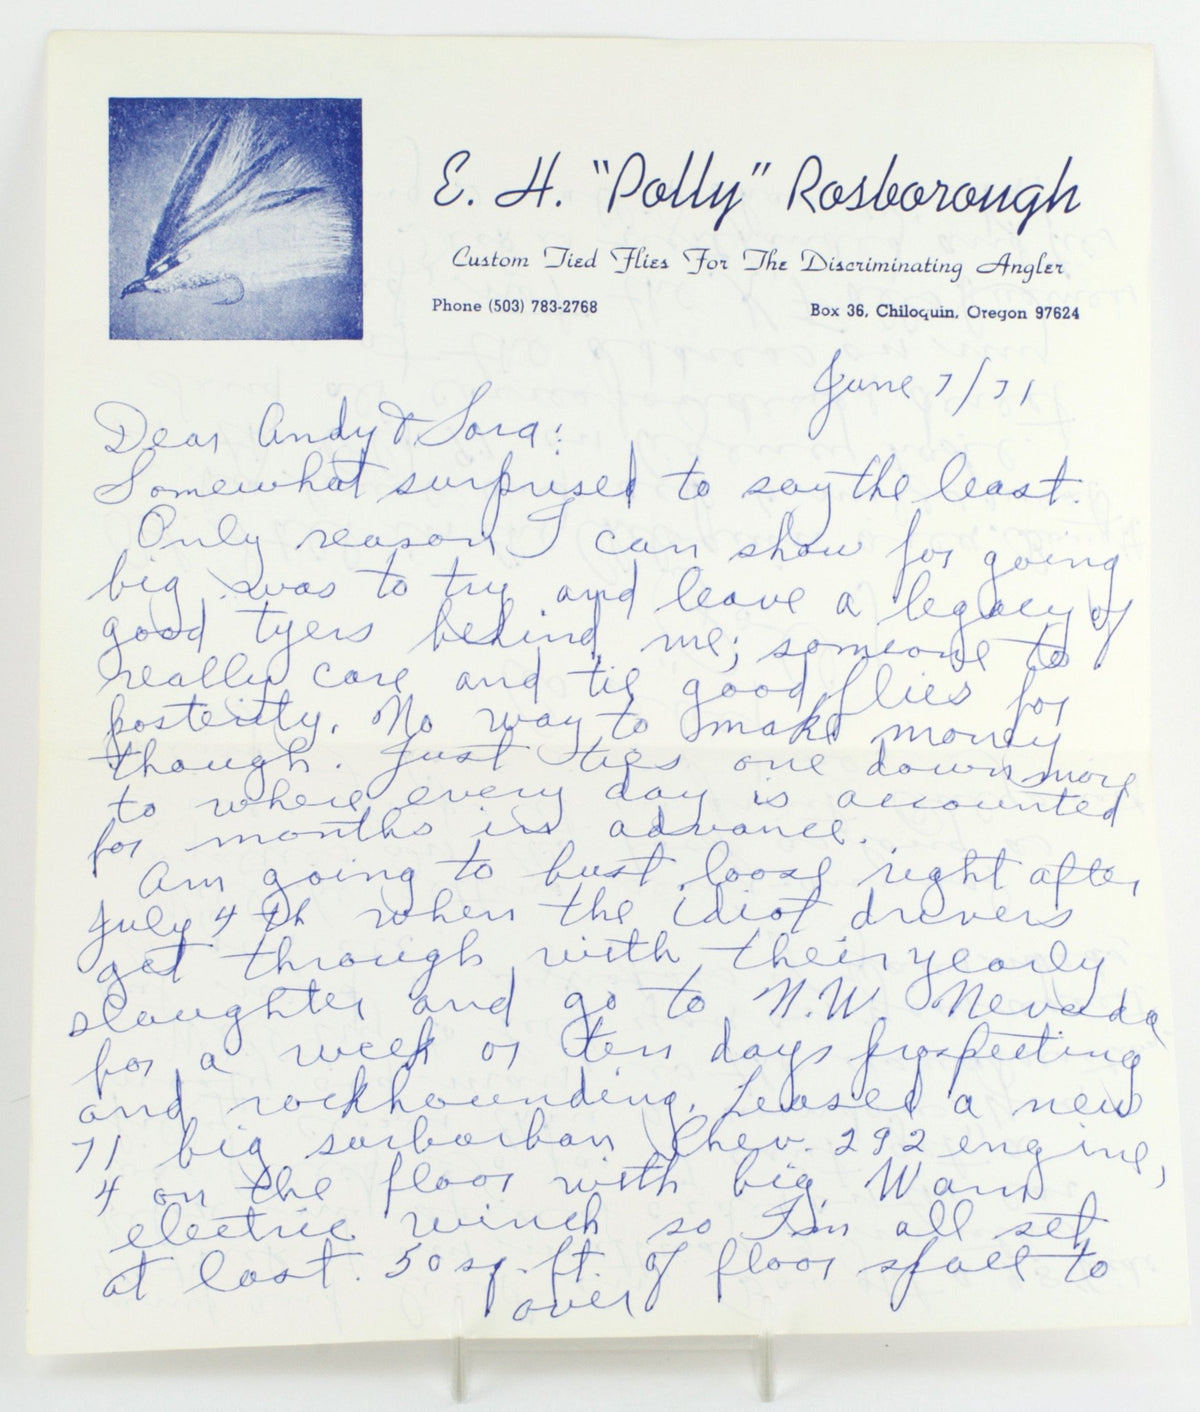 E. H. "Polly" Rosborough
Custom Tied Flies For The Discriminating Angler
Phone (503) 783-2768
Box 36, Chiloquin, Oregon 97624
June 7/71
Dear Andy & Sara:
Somewhat surprised to say the least.
Only reason I can show for going
big was to try and leave a legacy of
good tyers behind me; someone to
really care and tie good flies for
posterity. No way to make money
though. Just ties one down more
to where every day is accounted
for months in advance.
Am going to bust loose right after
July 4th when the idiot drivers
get through with their yearly
slaughter and go to N.W. Nevada
for a week or ten days prospecting
and rockhounding. Leased a new
71 big surburban Chev. 292 engine,
4 on the floor with big Warn
electric winch so I'm all set
at last. 50 sq. ft. of floor space to
over